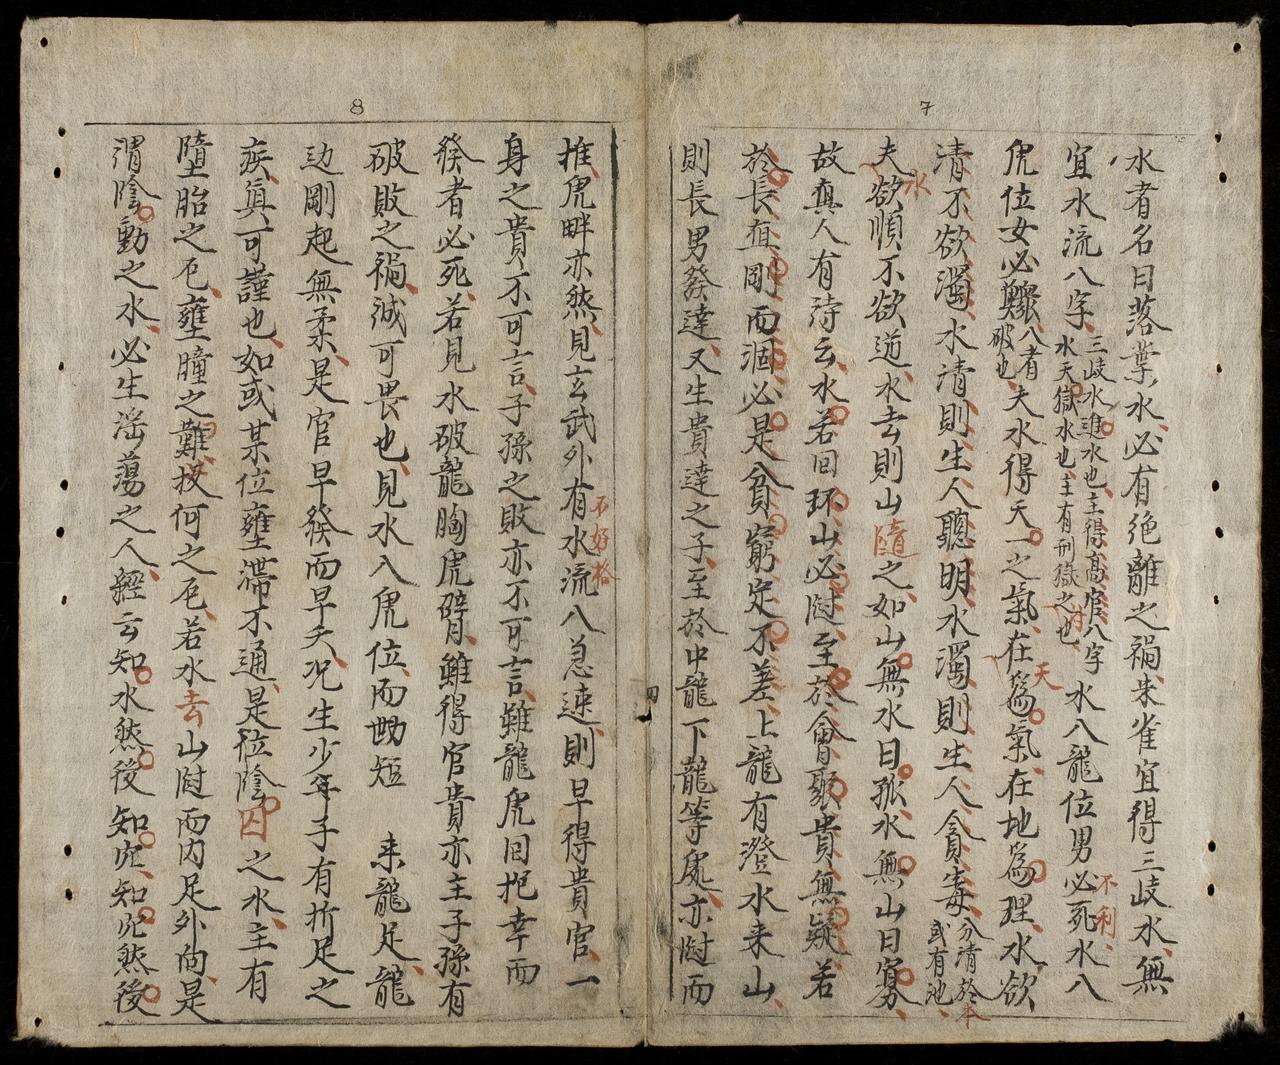 7
水者名曰落葉水必有絶離之禍朱雀宜得三歧水無
宜水流八字三歧水進水也主得高官八字水天獄水也主有刑獄之也水八龍位男必死水八
不利
虎位女必鰥八者破也夫水得天一之氣在天爲氣在地爲理水欲
清不欲濁水清則生人聰明水濁則生人貪毒分清於本或有池
夫水欲順不欲逆水去則山隨之如山無水曰孤水無山曰寡
故眞人有詩云水若回环山必尉至於會聚貴無疑若
於長直剛而涸必是貧窮定不差上龍有澄水来山
則長男發達又生貴達之子至於中龍下龍等處亦尉而
四
8
推虎畔亦然見玄武外有水流八急速則早得貴官一
不好格
身之貴不可言子孫之敗亦不可言雖龍虎回抱幸而
發者必死若見水破龍胸虎臂雖得官貴亦主子孫有
破敗之禍誠可畏也見水入虎位而坳短 来龍足龍
边剛起無柔是官早發而早夭况生少年子有折足之
疾眞可謹也如或某位壅滯不通是位陰囚之水主有
墮胎之厄壅瞳之難投何之厄若水去山尉而内足外向是
謂陰動之水必生滛蕩之人經云知水然後知穴知穴然後